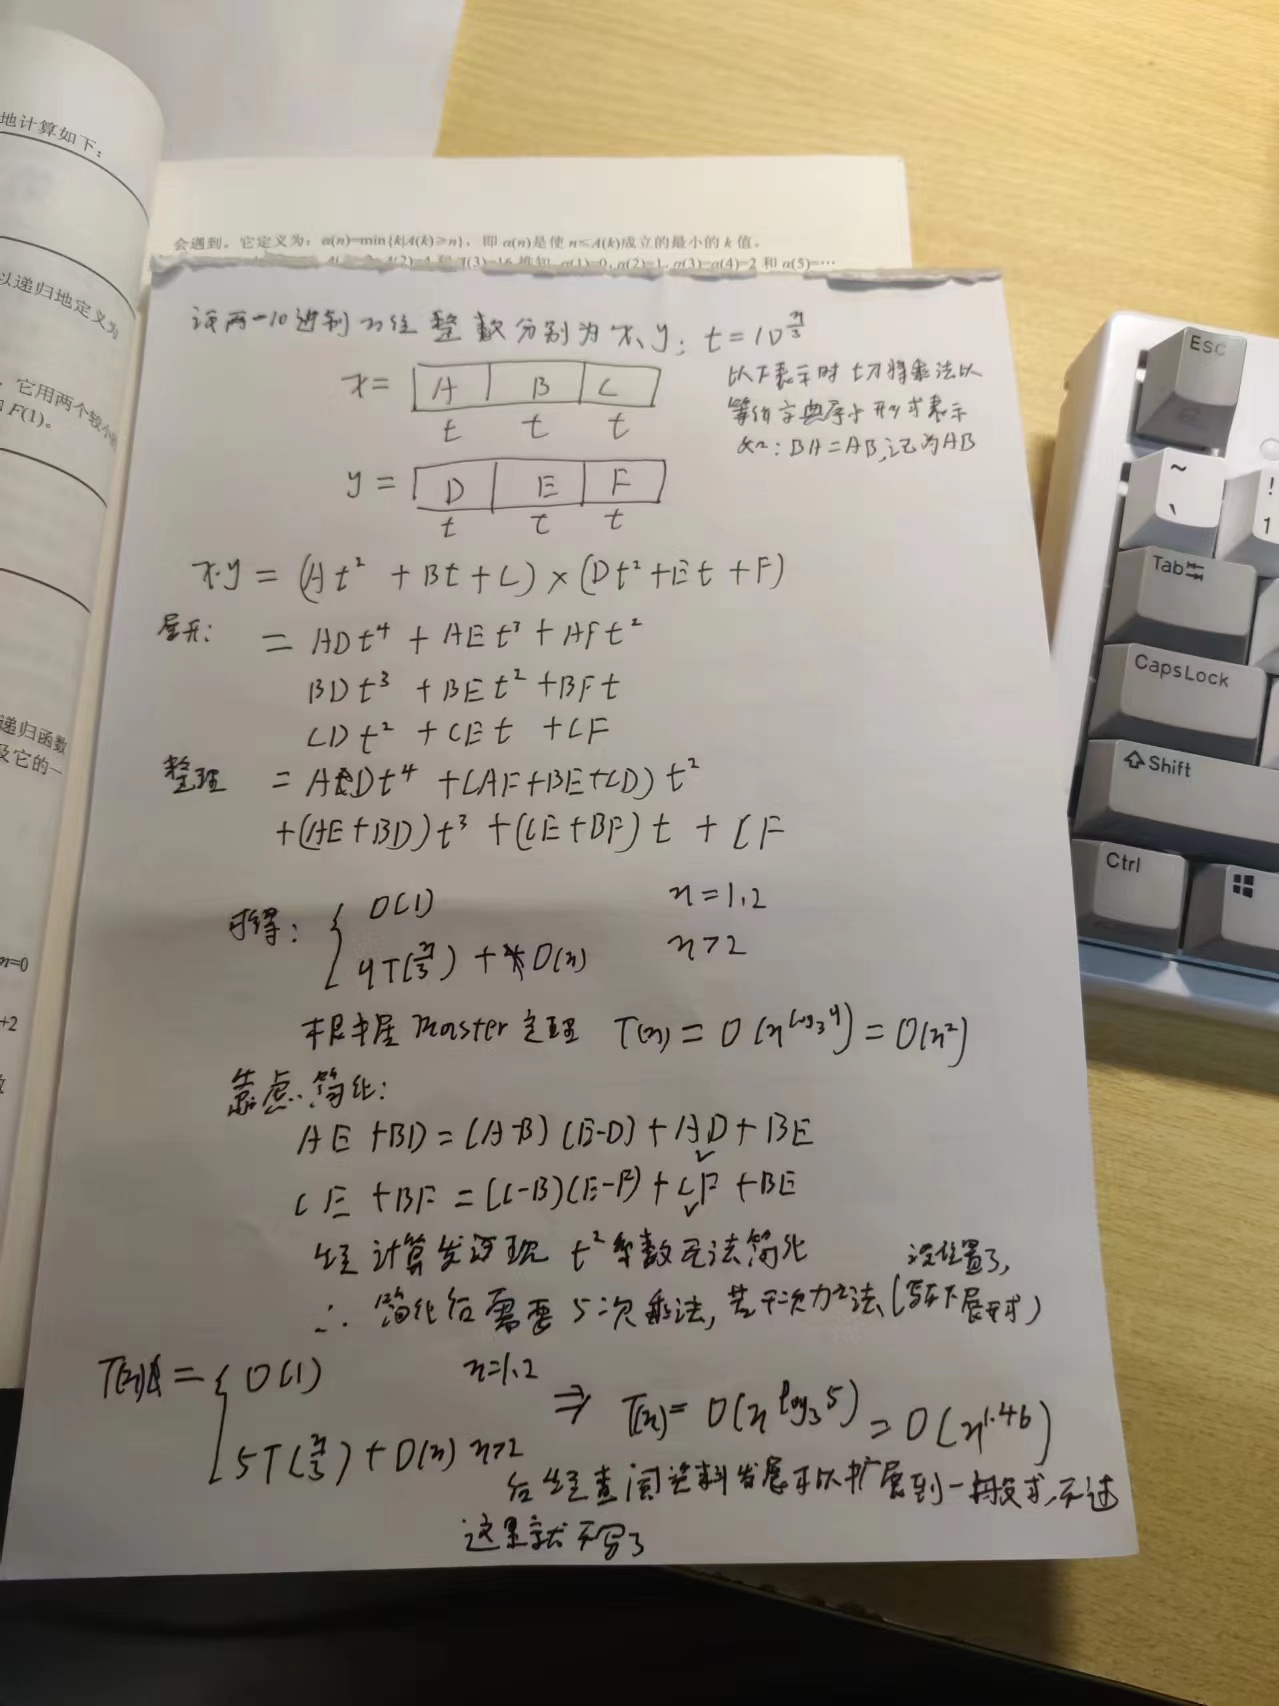 地计算如下：
以递归地定义为
，它用两个较小的
F(1)。
递归函数
及它的一
m=0
+2
会遇到。它定义为：α(n)=min{k|A(k)≥n}，即 α(n)是使 n≤A(k)成立的最小的 k 值。
α(1)=0, α(2)=1, α(3)=α(4)=2 和 α(5)=…
设两一10进制 n位 整数分别为 x、y; t=10^{n/3}
x= A B C
t t t
以下表示时 均将乘法以
等价字典序小形式表示
如: BA=AB,记为AB
y= D E F
t t t
x·y = (At² + Bt + C) × (Dt² + Et + F)
展开: = ADt⁴ + AEt³ + AFt²
BDt³ + BEt² + BFt
CDt² + CEt + CF
整理 = ADt⁴ + (AF+BE+CD)t²
+(AE+BD)t³ + (CE+BF)t + CF
可得: { O(1) n=1,2
9T(n/3) + O(n) n>2
根据 Master 定理 T(n) = O(n^{log₃9}) = O(n²)
考虑简化:
AE+BD = (A-B)(E-D) + AD + BE
CE+BF = (C-B)(E-F) + CF + BE
经计算发现 t² 系数无法简化
没位置了,
∴ 简化后需要 5次乘法, 若干次加法、(写下展开式)
T(n) = { O(1) n=1,2
5T(n/3) + O(n) n>2
⇒ T(n) = O(n^{log₃5}) = O(n^{1.46})
后经查阅资料发展可以扩展到一般式,不过
这里就不写了
Esc
~ `
! 1
Tab
CapsLock
Shift
Ctrl